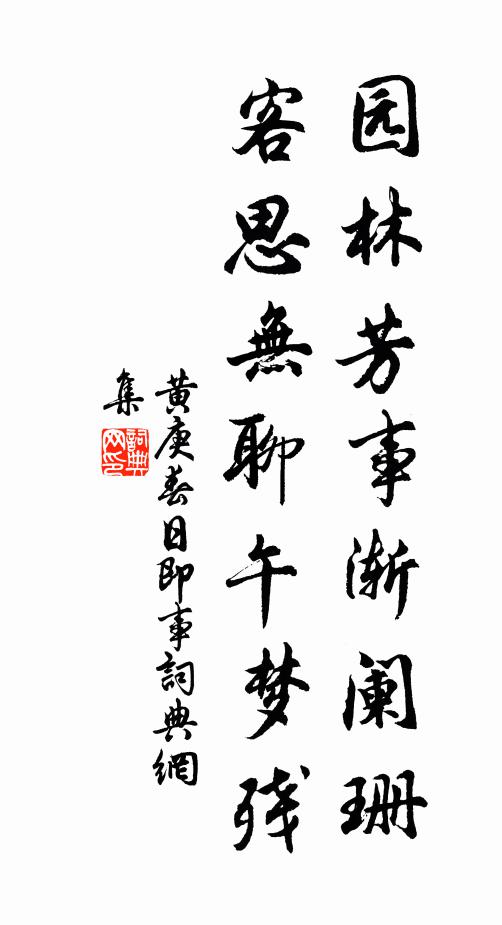 园林芳事渐阑珊
客思無聊午梦残
黄庚春日即事詞典網
集
詞典网印